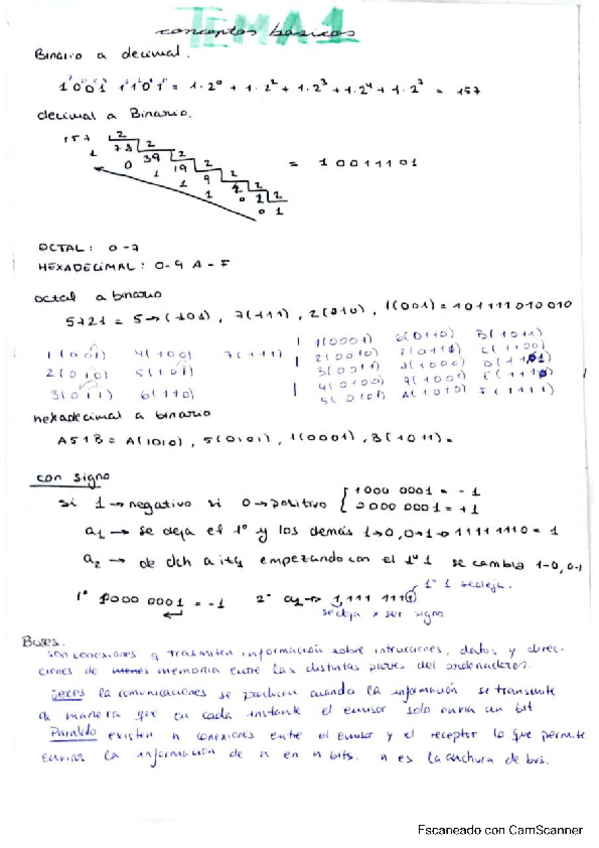 TEMA 1
conceptos basicos
Binario a decimal.
1 0 0 1 1 1 0 1 = 1·2⁰ + 1·2² + 1·2³ + 1·2⁴ + 1·2⁷ = 157
decimal a Binario.
157 2
1 78 2
0 39 2
1 19 2
1 9 2
1 4 2
0 2 2
0 1
= 1 0 0 1 1 1 0 1
OCTAL: 0-7
HEXADECIMAL: 0-9 A-F
octal a binario
5721 = 5→(101), 7(111), 2(010), 1(001) = 101111010010
1(001) 4(100) 7(111) 1(0001) 6(0110) B(1011)
2(010) 5(101) 2(0010) 7(0111) C(1100)
3(011) 6(110) 3(0011) 8(1000) D(1101)
4(0100) 9(1001) E(1110)
5(0101) A(1010) F(1111)
hexadecimal a binario
A51B = A(1010), 5(0101), 1(0001), B(1011) =
con signo
si 1→negativo si 0→positivo { 1000 0001 = -1
0000 0001 = +1
a₁ → se deja el 1º y los demás 1→0, 0→1 → 11111110 = 1
a₂ → de dch a izq empezando con el 1º 1 se cambia 1-0, 0-1
1º 1000 0001 = -1 2º a₂→ 1,111 1111 1º 1 se deja.
se deja x ser signo
Buses.
son conexiones q trasmiten información sobre intrucciones, datos y direc-
ciones de menos memoria entre las distintas partes del ordenadores.
la comunicaciones se producen cuando la información se transmite
de manera que en cada instante el emisor solo envia un bit
Paralelo existen n conexiones entre el emisor y el receptor lo que permite
enviar la información de n en n bits. n es la anchura de bus.
Escaneado con CamScanner